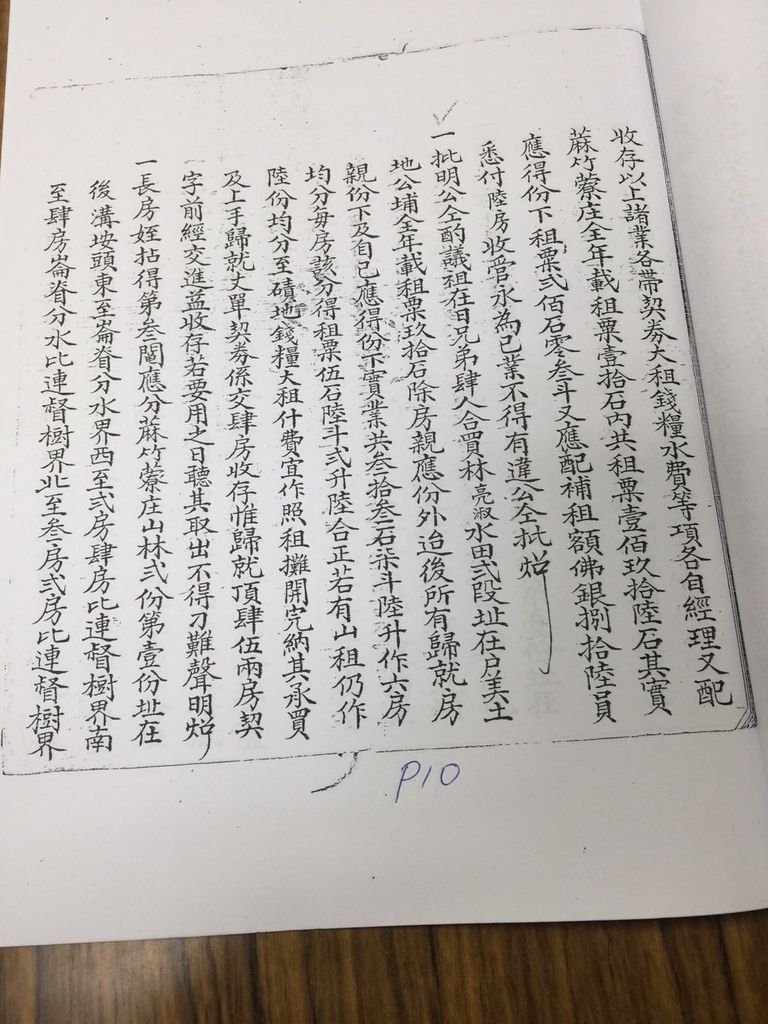 收存以上諸業各帶契券大租錢糧水費等項各自經理又配
蔴竹藔庄全年載租粟壹拾石內共租粟壹佰玖拾陸石其實
應得份下租粟弍佰石零叁斗又應配補租額佛銀捌拾陸員
悉付陸房收管永為已業不得有違公仝批炤
一批明公仝酌議祖在日兄弟肆人合買林亮淑水田弍段址在尸美土
地公埔全年載租粟玖拾石除房親應份外迨後所有歸就房
親份下及自己應得份下實業共叁拾叁石柒斗陸升作六房
均分每房該分得租粟伍石陸斗弍升陸合正若有山租仍作
陸份均分至磧地錢糧大租什費宜作照租攤開完納其承買
及上手歸就丈單契券係交肆房收存惟歸就頂肆伍兩房契
一字前經交進益收存若要用之日聽其取出不得刁難聲明炤
一長房姪拈得第叁鬮應分蔴竹藔庄山林弍份第壹份址在
後溝垵頭東至崙脊分水界西至弍房肆房比連督樹界南
至肆房崙脊分水比連督樹界北至叁房弍房比連督樹界
P10